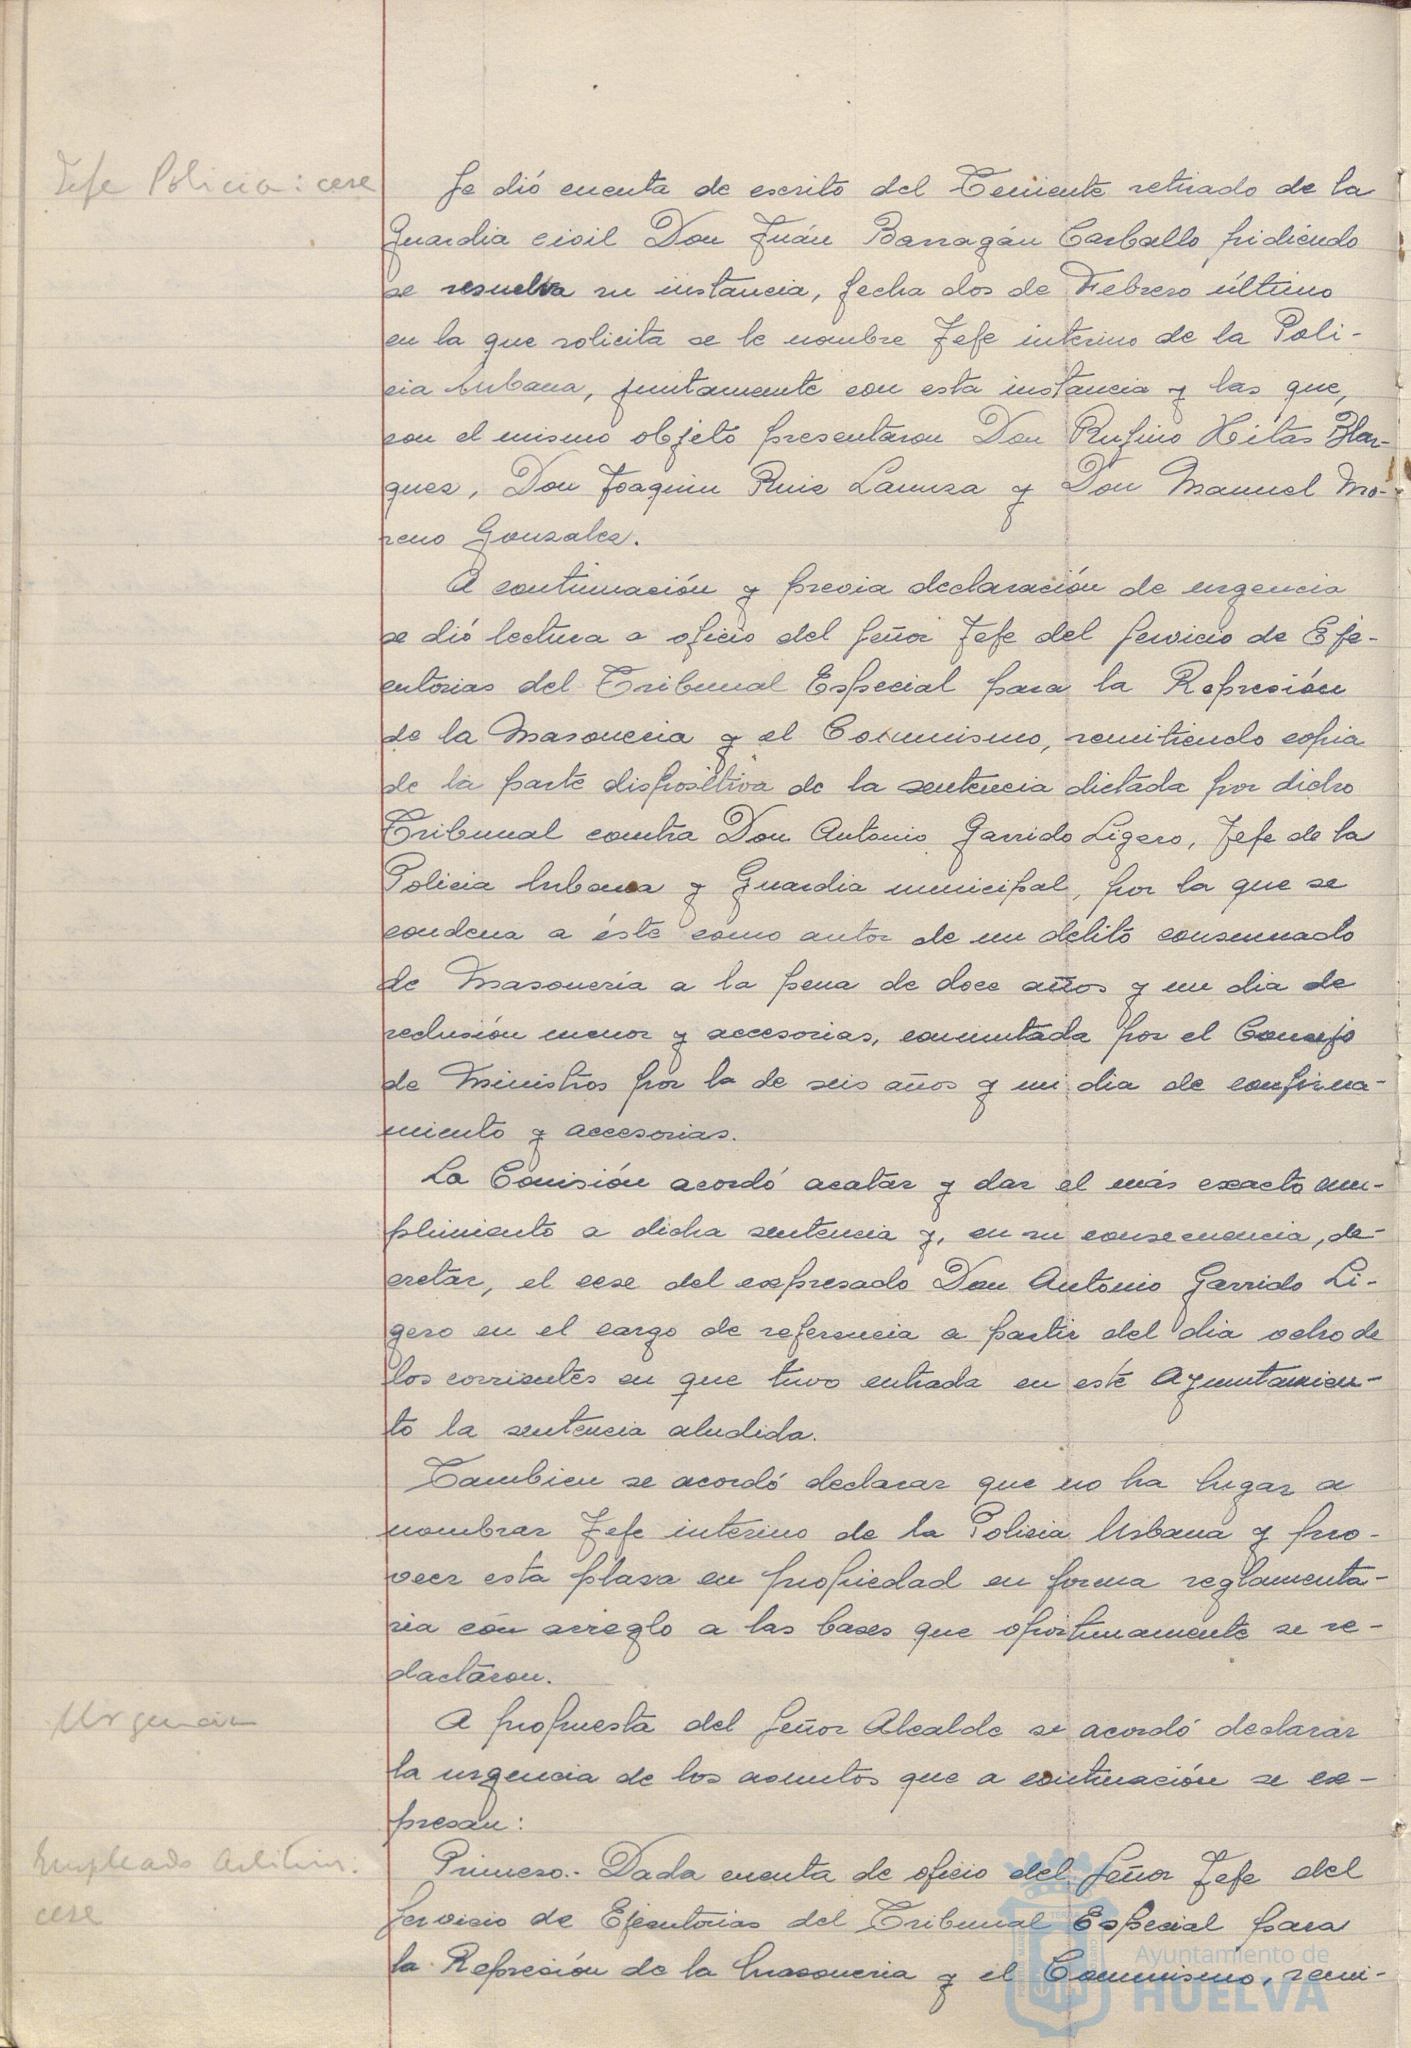 Jefe Policia: cese
Se dió cuenta de escrito del Teniente retirado de la
Guardia civil Don Juán Barragán Carballo pidiendo
se resuelva su instancia, fecha dos de Febrero último
en la que solicita se le nombre Jefe interino de la Poli-
cia Urbana, juntamente con esta instancia y las que,
con el mismo objeto presentaron Don Rufino Hitas Blar-
quez, Don Joaquin Ruiz Lanuza y Don Manuel Mo-
reno Gonzalez.
A continuación y previa declaración de urgencia
se dió lectura a oficio del Señor Jefe del Servicio de Eje-
cutorias del Tribunal Especial para la Represión
de la Masoneria y el Comunismo, remitiendo copia
de la parte dispositiva de la sentencia dictada por dicho
Tribunal contra Don Antonio Garrido Ligero, Jefe de la
Policia Urbana y Guardia municipal, por la que se
condena a éste como autor de un delito consumado
de Masonería a la pena de doce años y un dia de
reclusión menor y accesorias, conmutada por el Consejo
de Ministros por la de seis años y un dia de confina-
miento y accesorias.
La Comisión acordó acatar y dar el más exacto cum-
plimiento a dicha sentencia y, en su consecuencia, de-
cretar, el cese del expresado Don Antonio Garrido Li-
gero en el cargo de referencia a partir del dia ocho de
los corrientes en que tuvo entrada en este Ayuntamien-
to la sentencia aludida.
Tambien se acordó declarar que no ha lugar a
nombrar Jefe interino de la Policia Urbana y pro-
veer esta plaza en propiedad en forma reglamenta-
ria con arreglo a las bases que oportunamente se re-
dactaron.
Urgencia
A propuesta del Señor Alcalde se acordó declarar
la urgencia de los asuntos que a continuación se ex-
presan:
Empleado Arbitrios.
cese
Primero.- Dada cuenta de oficio del Señor Jefe del
Servicio de Ejecutorias del Tribunal Especial para
la Represión de la Masoneria y el Comunismo, remi-
Ayuntamiento de
HUELVA